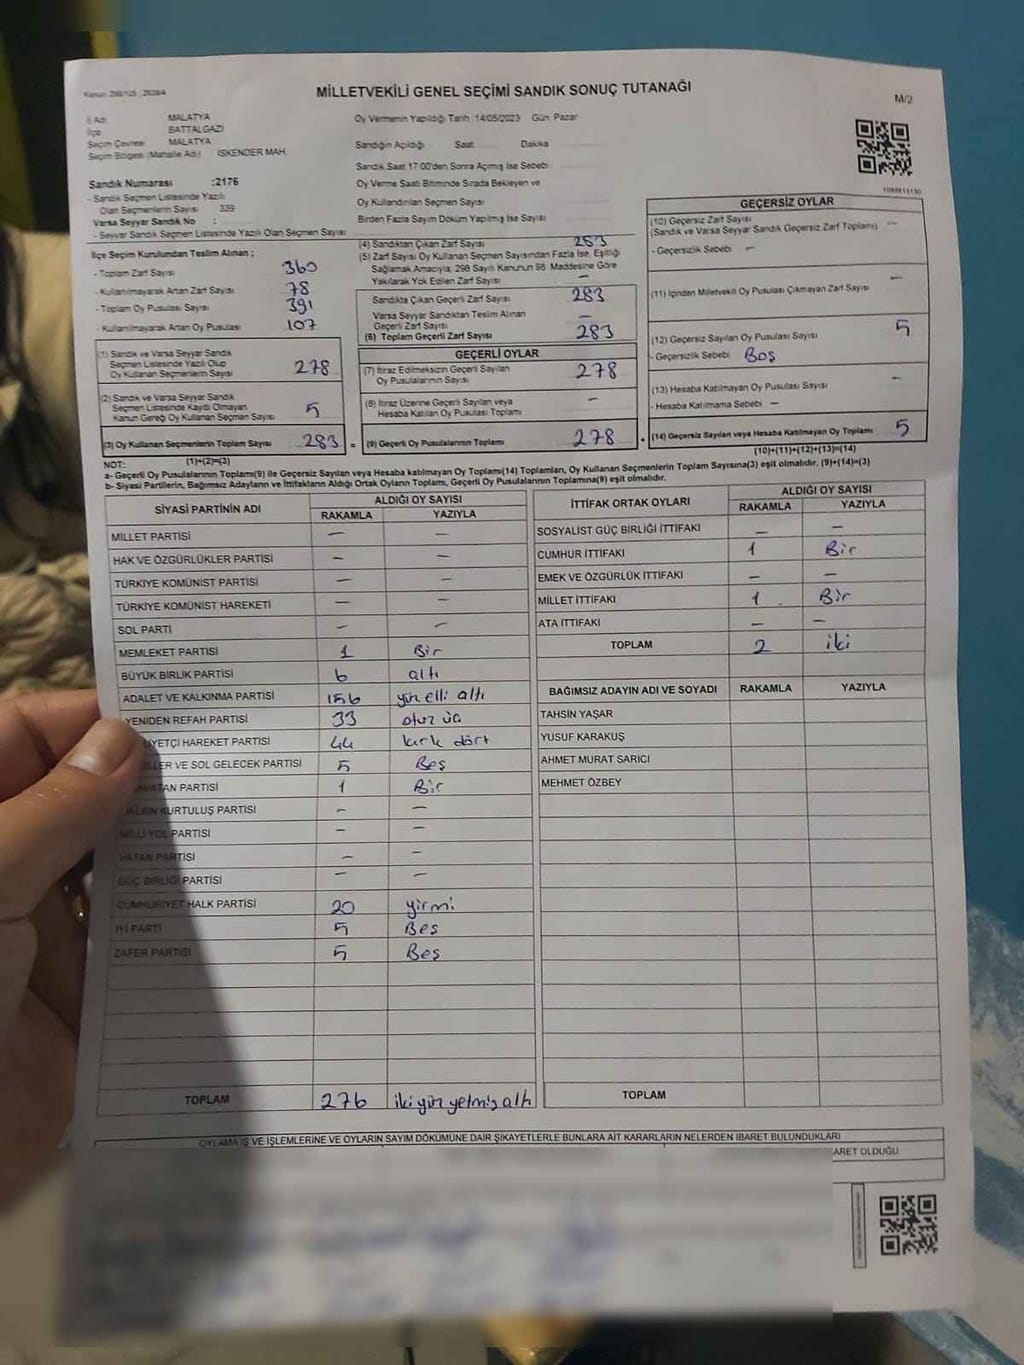 Kanun: 298/105 ; 2839/4
MİLLETVEKİLİ GENEL SEÇİMİ SANDIK SONUÇ TUTANAĞI
M/2
İl Adı MALATYA
İlçe BATTALGAZİ
Seçim Çevresi MALATYA
Seçim Bölgesi (Mahalle Adı) İSKENDER MAH.
Sandık Numarası :2176
- Sandık Seçmen Listesinde Yazılı
Olan Seçmenlerin Sayısı 339
Varsa Seyyar Sandık No :
- Seyyar Sandık Seçmen Listesinde Yazılı Olan Seçmen Sayısı
Oy Vermenin Yapıldığı Tarih :14/05/2023 Gün: Pazar
Sandığın Açıldığı Saat Dakika
Sandık Saat 17:00'den Sonra Açımış İse Sebebi
Oy Verme Saati Bitiminde Sırada Bekleyen ve
Oy Kullandırılan Seçmen Sayısı
Birden Fazla Sayım Döküm Yapılmış İse Sayısı
İlçe Seçim Kurulundan Teslim Alınan ;
- Toplam Zarf Sayısı 360
- Kullanılmayarak Artan Zarf Sayısı 78
- Toplam Oy Pusulası Sayısı 391
- Kullanılmayarak Artan Oy Pusulası 107
(1) Sandık ve Varsa Seyyar Sandık
Seçmen Listesinde Yazılı Olup
Oy Kullanan Seçmenlerin Sayısı 278
(2) Sandık ve Varsa Seyyar Sandık
Seçmen Listesinde Kayıtlı Olmayan
Kanun Gereği Oy Kullanan Seçmen Sayısı 5
(3) Oy Kullanan Seçmenlerin Toplam Sayısı 283 =
(1)+(2)=(3)
(4) Sandıktan Çıkan Zarf Sayısı 283
(5) Zarf Sayısı Oy Kullanan Seçmen Sayısından Fazla İse, Eşitliği
Sağlamak Amacıyla, 298 Sayılı Kanunun 98. Maddesine Göre
Yakılarak Yok Edilen Zarf Sayısı —
Sandıkta Çıkan Geçerli Zarf Sayısı 283
Varsa Seyyar Sandıktan Teslim Alınan
Geçerli Zarf Sayısı —
(6) Toplam Geçerli Zarf Sayısı 283
GEÇERLİ OYLAR
(7) İtiraz Edilmeksizin Geçerli Sayılan
Oy Pusulalarının Sayısı 278
(8) İtiraz Üzerine Geçerli Sayılan veya
Hesaba Katılan Oy Pusulası Toplamı —
(9) Geçerli Oy Pusulalarının Toplamı 278 +
GEÇERSİZ OYLAR
(10) Geçersiz Zarf Sayısı
(Sandık ve Varsa Seyyar Sandık Geçersiz Zarf Toplamı) —
- Geçersizlik Sebebi —
(11) İçinden Milletvekili Oy Pusulası Çıkmayan Zarf Sayısı —
(12) Geçersiz Sayılan Oy Pusulası Sayısı 5
- Geçersizlik Sebebi Boş
(13) Hesaba Katılmayan Oy Pusulası Sayısı —
- Hesaba Katılmama Sebebi —
(14) Geçersiz Sayılan veya Hesaba Katılmayan Oy Toplamı 5
(10)+(11)+(12)+(13)=(14)
NOT:
a- Geçerli Oy Pusulalarının Toplamı(9) ile Geçersiz Sayılan veya Hesaba katılmayan Oy Toplamı(14) Toplamları, Oy Kullanan Seçmenlerin Toplam Sayısına(3) eşit olmalıdır. (9)+(14)=(3)
b- Siyasi Partilerin, Bağımsız Adayların ve İttifakların Aldığı Ortak Oyların Toplamı, Geçerli Oy Pusulalarının Toplamına(9) eşit olmalıdır.
SİYASİ PARTİNİN ADI ALDIĞI OY SAYISI
RAKAMLA YAZIYLA
MİLLET PARTİSİ — —
HAK VE ÖZGÜRLÜKLER PARTİSİ — —
TÜRKİYE KOMÜNİST PARTİSİ — —
TÜRKİYE KOMÜNİST HAREKETİ — —
SOL PARTİ — —
MEMLEKET PARTİSİ 1 Bir
BÜYÜK BİRLİK PARTİSİ 6 altı
ADALET VE KALKINMA PARTİSİ 156 yüz elli altı
YENİDEN REFAH PARTİSİ 33 otuz üç
YETÇİ HAREKET PARTİSİ 44 kırk dört
LLER VE SOL GELECEK PARTİSİ 5 Beş
ATAN PARTİSİ 1 Bir
KURTULUŞ PARTİSİ — —
MİLLİ YOL PARTİSİ — —
VATAN PARTİSİ — —
GÜÇ BİRLİĞİ PARTİSİ — —
CUMHURİYET HALK PARTİSİ 20 yirmi
İYİ PARTİ 5 Beş
ZAFER PARTİSİ 5 Beş
TOPLAM 276 iki yüz yetmiş altı
İTTİFAK ORTAK OYLARI ALDIĞI OY SAYISI
RAKAMLA YAZIYLA
SOSYALİST GÜÇ BİRLİĞİ İTTİFAKI — —
CUMHUR İTTİFAKI 1 Bir
EMEK VE ÖZGÜRLÜK İTTİFAKI — —
MİLLET İTTİFAKI 1 Bir
ATA İTTİFAKI — —
TOPLAM 2 iki
BAĞIMSIZ ADAYIN ADI VE SOYADI RAKAMLA YAZIYLA
TAHSİN YAŞAR
YUSUF KARAKUŞ
AHMET MURAT SARICI
MEHMET ÖZBEY
TOPLAM
OYLAMA İŞ VE İŞLEMLERİNE VE OYLARIN SAYIM DÖKÜMÜNE DAİR ŞİKAYETLERLE BUNLARA AİT KARARLARIN NELERDEN İBARET BULUNDUKLARI
ARET OLDUĞU